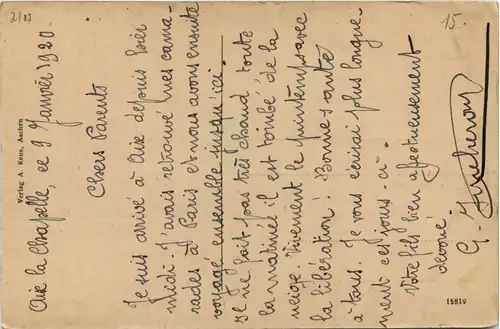 7/00
15.-
Aix la Chapelle, ce 9 Janvier 1920
Chers Parents
Je suis arrivé à Aix depuis hier
midi. J'avais retrouvé mes cama-
rades à Paris et nous avons ensuite
voyagé ensemble jusqu'ici.
Il ne fait pas très chaud toute
la matinée il est tombé de la
neige. Vivement le printemps avec
la libération! Bonne santé
à tous. Je vous écrirai plus longue-
ment ces jours-ci.
Votre fils bien affectueusement
dévoué.
G.
Verlag A. Kenn, Aachen
15819